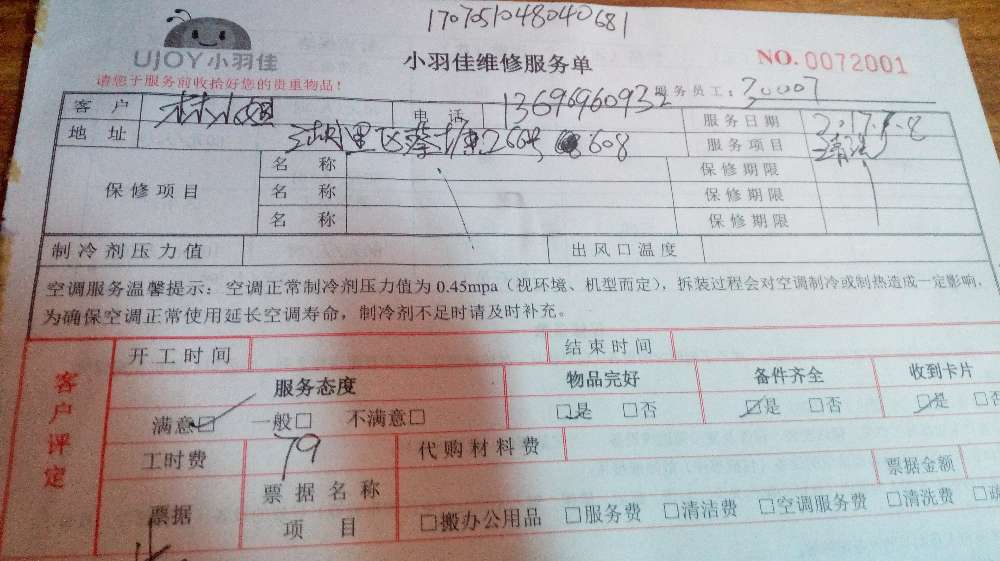 170705104804068 1
UJOY小羽佳
小羽佳维修服务单
NO. 0072001
请您于服务前收拾好您的贵重物品!
服务员工: 30007
客 户 林小姐 电 话 13696960932 服务日期 2017.
地 址 湖里区蔡塘260号 608 服务项目 清洗
保修项目 名 称 保修期限
名 称 保修期限
名 称 保修期限
制冷剂压力值 出风口温度
空调服务温馨提示: 空调正常制冷剂压力值为 0.45mpa (视环境、机型而定), 拆装过程会对空调制冷或制热造成一定影响,
为确保空调正常使用延长空调寿命, 制冷剂不足时请及时补充。
客户评定
开工时间 结束时间
服务态度 物品完好 备件齐全 收到卡片
满意☑ 一般□ 不满意□ ☑是 □否 ☑是 □否 ☑是 □否
工时费 79 代购材料费
票据 票据名称 票据金额
项 目 □搬办公用品 □服务费 □清洁费 □空调服务费 □清洗费